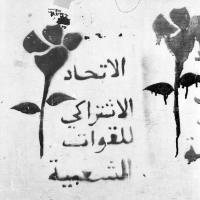 الاتحاد
الاشتراكي
للقوات
الشعبية